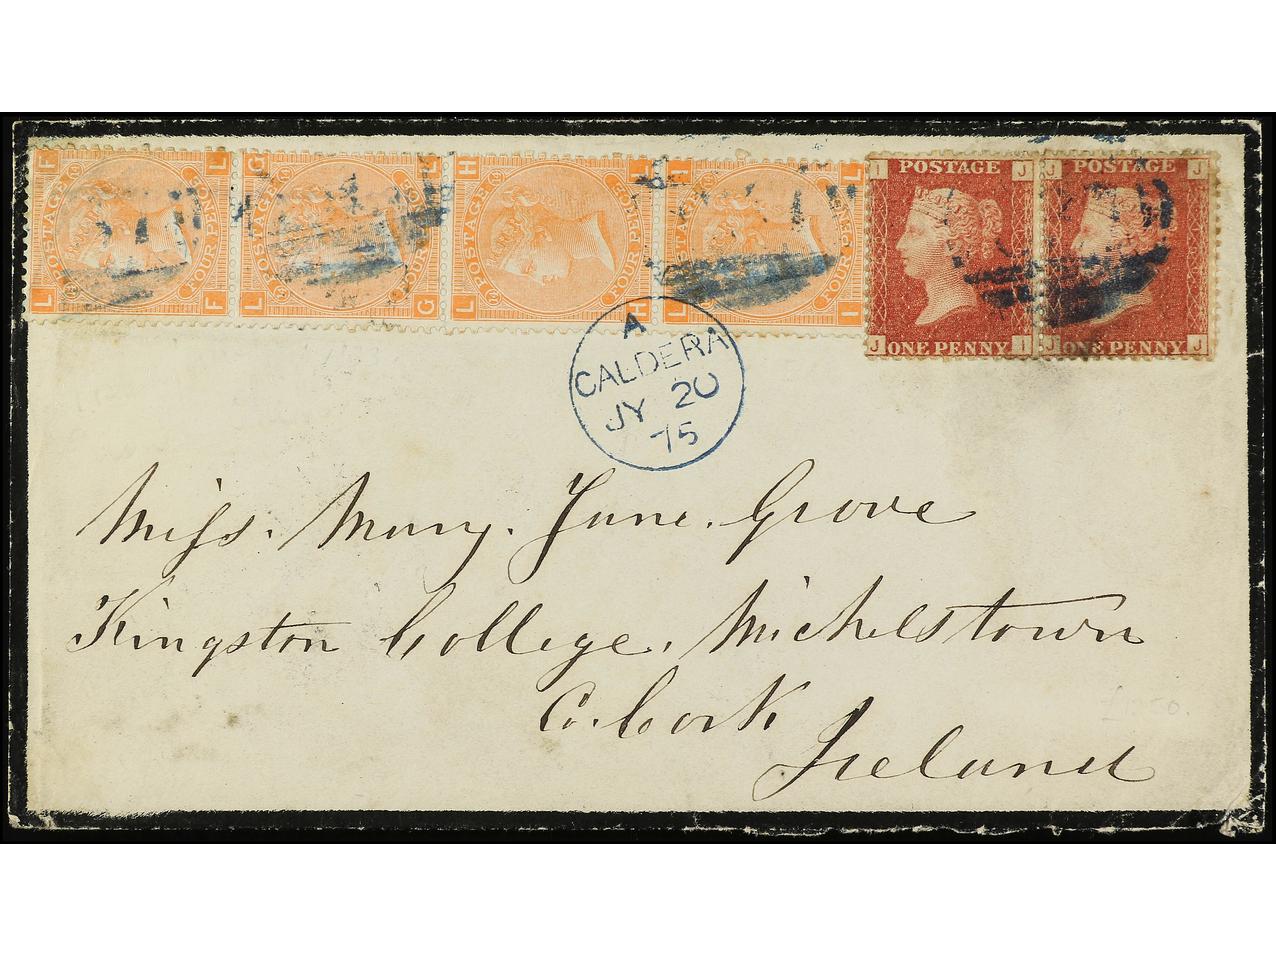 F L G H I L
POSTAGE FOUR PENCE
L F
POSTAGE FOUR PENCE
L G
POSTAGE FOUR PENCE
L H
POSTAGE FOUR PENCE
L I
I POSTAGE J
J ONE PENNY I
J POSTAGE J
J ONE PENNY J
A
CALDERA
JY 20
75
Miss. Mary. Jane. Grove
Kingston College. Michelstown
Co. Cork
Ireland